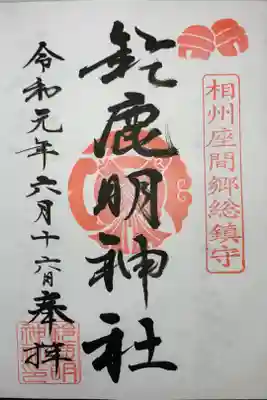 相州座間郷総鎮守
鈴鹿明神社
令和元年六月十六日奉拝